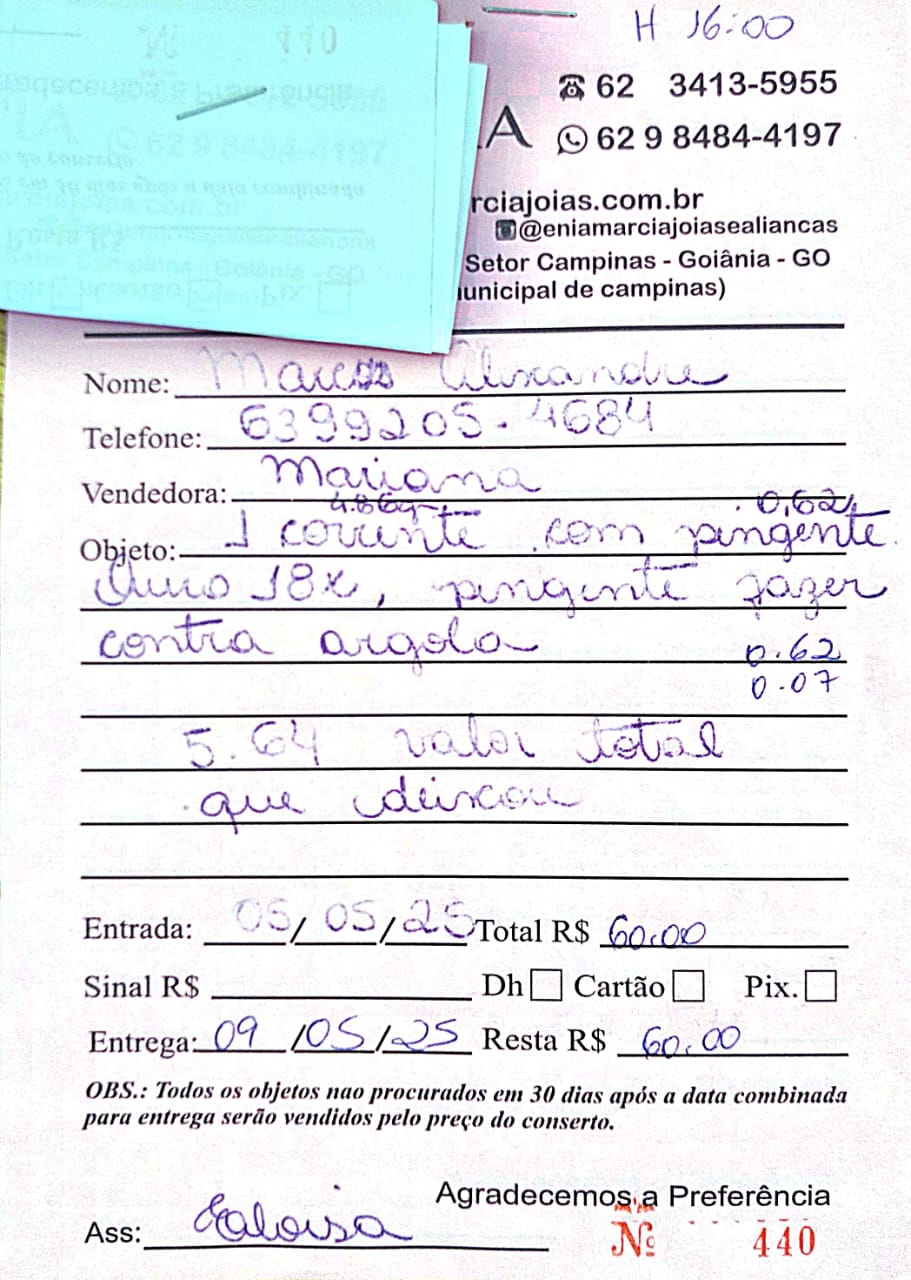 H 16:00
62 3413-5955
A 62 9 8484-4197
rciajoias.com.br
@eniamarciajoiasealiancas
Setor Campinas - Goiânia - GO
unicipal de campinas)
Nome: Marcos Alexandre
Telefone: 6399205-4684
Vendedora: Mariana
0,62
Objeto: 1 corrente com pingente
Ouro 18k, pingente fazer
contra argola
0.62
0.07
5.64 valor total
que deixou
Entrada: 05/05/25 Total R$ 60,00
Sinal R$ Dh Cartão Pix.
Entrega: 09/05/25 Resta R$ 60,00
OBS.: Todos os objetos nao procurados em 30 dias após a data combinada
para entrega serão vendidos pelo preço do conserto.
Agradecemos a Preferência
Ass: Eloisa
Nº 440